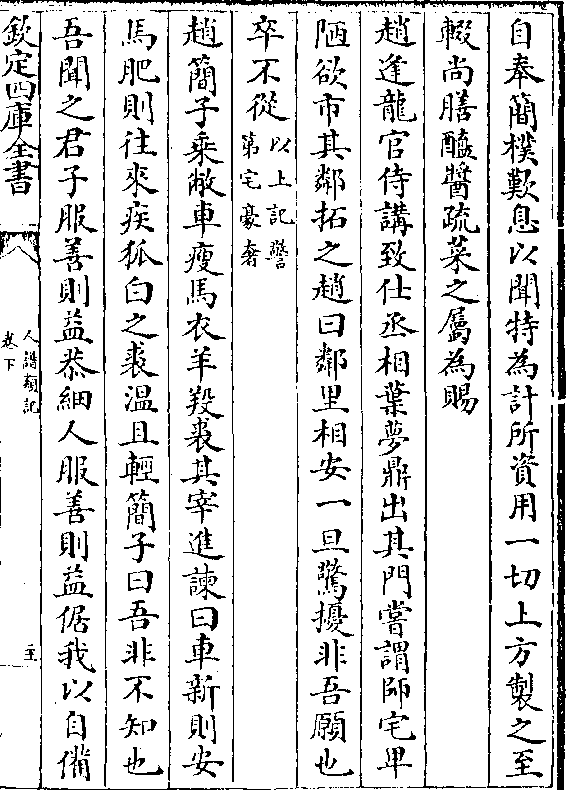 自奉簡樸歎息以聞特為計所資用一切上方製之至
輟尚膳醯醬疏菜之屬為賜
趙逢龍官侍講致仕丞相葉夢鼎出其門嘗謂師宅卑
陋欲市其鄰拓之趙曰鄰里相安一旦驚擾非吾願也
卒不從以上記警第宅豪奢
趙簡子乘敝車瘦馬衣羊羖裘其宰進諫曰車新則安
馬肥則往來疾狐白之裘温且輕簡子曰吾非不知也
吾聞之君子服善則益恭細人服善則益倨我以自備
欽定四庫全書
人譜類記
卷下